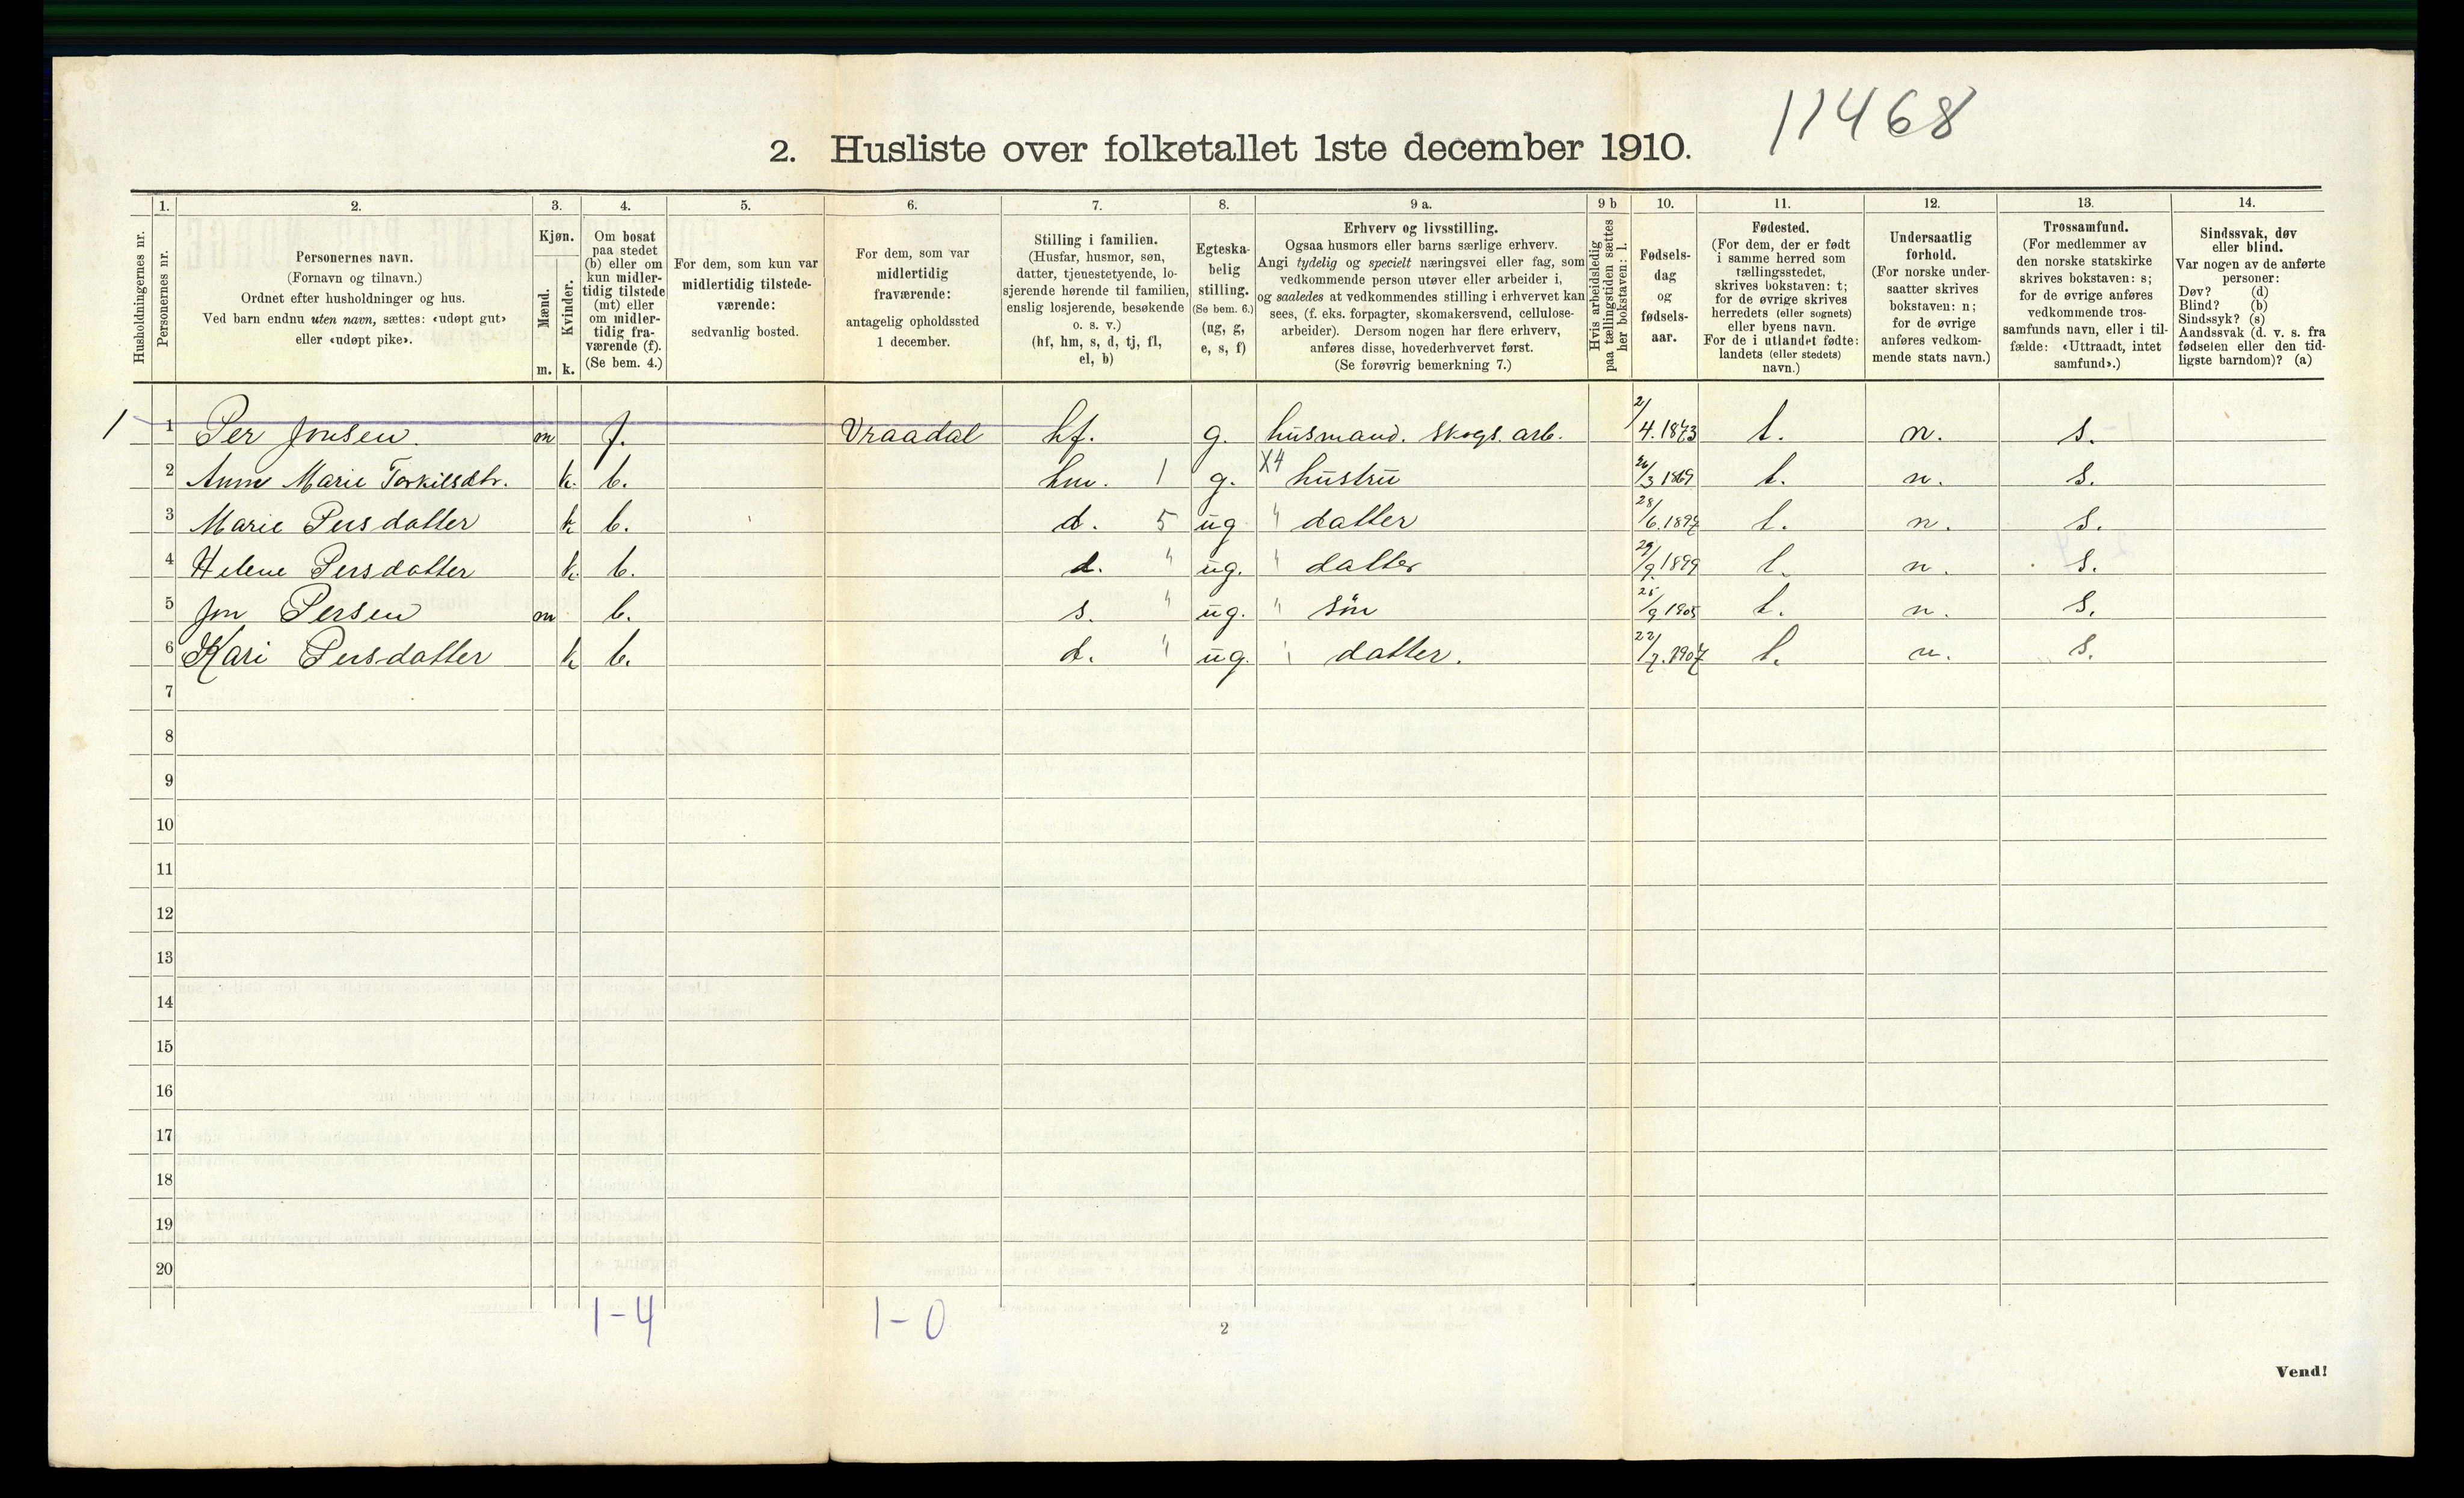 11468
2. Husliste over folketallet 1ste december 1910.
Husholdningernes nr.
1.
Personernes nr.
2.
Personernes navn.
(Fornavn og tilnavn.)
Ordnet efter husholdninger og hus.
Ved barn endnu uten navn, sættes: «udøpt gut»
eller «udøpt pike».
3.
Kjøn.
Mænd.
Kvinder.
m. k.
4.
Om bosat
paa stedet
(b) eller om
kun midler-
tidig tilstede
(mt) eller
om midler-
tidig fra-
værende (f).
(Se bem. 4.)
5.
For dem, som kun var
midlertidig tilstede-
værende:
sedvanlig bosted.
6.
For dem, som var
midlertidig
fraværende:
antagelig opholdssted
1 december.
7.
Stilling i familien.
(Husfar, husmor, søn,
datter, tjenestetyende, lo-
sjerende hørende til familien,
enslig losjerende, besøkende
o. s. v.)
(hf, hm, s, d, tj, fl,
el, b)
8.
Egteska-
belig
stilling.
(Se bem. 6.)
(ug, g,
e, s, f)
9 a.
Erhverv og livsstilling.
Ogsaa husmors eller barns særlige erhverv.
Angi tydelig og specielt næringsvei eller fag, som
vedkommende person utøver eller arbeider i,
og saaledes at vedkommendes stilling i erhvervet kan
sees, (f. eks. forpagter, skomakersvend, cellulose-
arbeider). Dersom nogen har flere erhverv,
anføres disse, hovederhvervet først.
(Se forøvrig bemerkning 7.)
9 b
Hvis arbeidsledig
paa tællingstiden sættes
her bokstaven: l.
10.
Fødsels-
dag
og
fødsels-
aar.
11.
Fødested.
(For dem, der er født
i samme herred som
tællingsstedet,
skrives bokstaven: t;
for de øvrige skrives
herredets (eller sognets)
eller byens navn.
For de i utlandet fødte:
landets (eller stedets)
navn.)
12.
Undersaatlig
forhold.
(For norske under-
saatter skrives
bokstaven: n;
for de øvrige
anføres vedkom-
mende stats navn.)
13.
Trossamfund.
(For medlemmer av
den norske statskirke
skrives bokstaven: s;
for de øvrige anføres
vedkommende tros-
samfunds navn, eller i til-
fælde: «Uttraadt, intet
samfund».)
14.
Sindssvak, døv
eller blind.
Var nogen av de anførte
personer:
Døv? (d)
Blind? (b)
Sindssyk? (s)
Aandssvak (d. v. s. fra
fødselen eller den tid-
ligste barndom)? (a)
1 1 Per Jonsen. m f. Vraadal hf. g. husmand. skogs. arb. 2/4. 1873 t. n. s.
2 Anne Marie Torkilsdtr. k. b. hm. 1 g. X4 hustru 26/3 1869 t. n. s.
3 Marie Persdatter k b. d. 5 ug " datter 28/6. 1897 t. n. s.
4 Helene Persdatter k. b. d. " ug. " datter 29/9. 1899 t. n. s.
5 Jon Persen m b. s. " ug. " sön 25/9 1905 t. n. s.
6 Kari Persdatter k b. d. " ug. " datter. 22/7. 1907 t. n. s.
7
8
9
10
11
12
13
14
15
16
17
18
19
20
1-4 1-0
2
Vend!